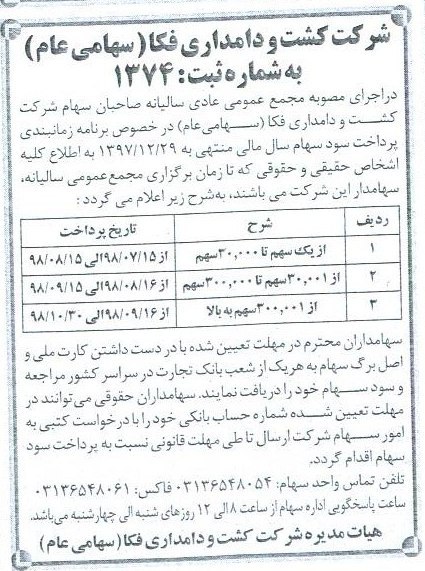 شرکت کشت و دامداری فکا (سهامی عام)
به شماره ثبت: ۱۳۷۴
در اجرای مصوبه مجمع عمومی عادی سالیانه صاحبان سهام شرکت
کشت و دامداری فکا (سهامی عام) در خصوص برنامه زمانبندی
پرداخت سود سهام سال مالی منتهی به ۱۳۹۷/۱۲/۲۹ به اطلاع کلیه
اشخاص حقیقی و حقوقی که تا زمان برگزاری مجمع عمومی سالیانه،
سهامدار این شرکت می باشند، به‌شرح زیر اعلام می گردد:
ردیف شرح تاریخ پرداخت
۱ از یک سهم تا ۳۰,۰۰۰سهم از ۹۸/۰۷/۱۵الی ۹۸/۰۸/۱۵
۲ از ۳۰,۰۰۱سهم تا ۳۰۰,۰۰۰سهم از ۹۸/۰۸/۱۶الی ۹۸/۰۹/۱۵
۳ از ۳۰۰,۰۰۱سهم به بالا از ۹۸/۰۹/۱۶الی ۹۸/۱۰/۳۰
سهامداران محترم در مهلت تعیین شده با در دست داشتن کارت ملی و
اصل برگ سهام به هریک از شعب بانک تجارت در سراسر کشور مراجعه
و سود سهام خود را دریافت نمایند. سهامداران حقوقی می‌توانند در
مهلت تعیین شده شماره حساب بانکی خود را با درخواست کتبی به
امور سهام شرکت ارسال تا طی مهلت قانونی نسبت به پرداخت سود
سهام اقدام گردد.
تلفن تماس واحد سهام: ۰۳۱۳۶۵۴۸۰۵۴ فاکس: ۰۳۱۳۶۵۴۸۰۶۱
ساعت پاسخگویی اداره سهام از ساعت ۸ الی ۱۲ روزهای شنبه الی چهارشنبه می‌باشد.
هیات مدیره شرکت کشت و دامداری فکا (سهامی عام)